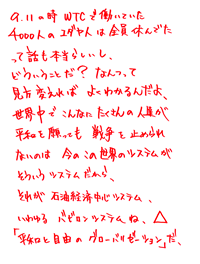 9.11の時 WTCで働いていた
4000人のユダヤ人は全員休んでた
って話も本当らしいし、
どういうことだ？なんつって
見方変えれば よくわかるんだよ、
世界中でこんなにたくさんの人達が
平和を願っても 戦争を止められ
ないのは 今のこの世界のシステムが
そういうシステムだから、
それが 石油経済中心システム、
いわゆる バビロンシステムね、△
「平和と自由のグローバリゼーション」だ、